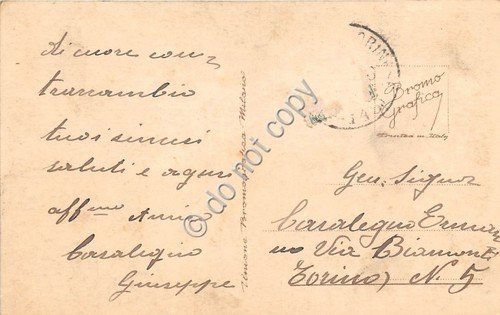 Di cuore con
tracambio
tuoi sinceri
saluti e auguri
aff.mo Amico
Casalegno
Giuseppe
Unione Bromografica Milano
TORINO
Bromo
Grafica
Printed in Italy
Gen. Signor
Casalegno Erman
no Via Biamonti
Torino, N. 5
do not copy